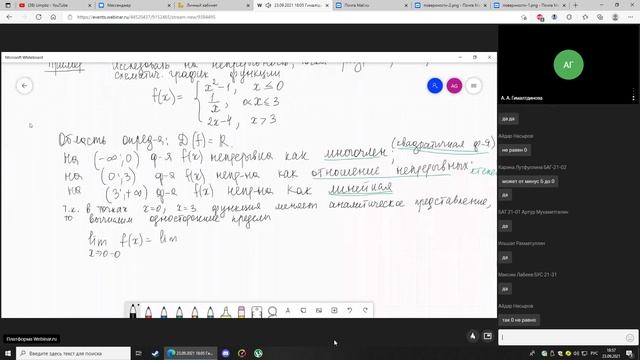 (28) Limpbiz - YouTube
Мессенджер
Личный кабинет
23.09.2021 18:05 Гималтд
Почта Mail.ru
поверхности-2.png — Почта М
поверхности-1.png — Почта М
events.webinar.ru/44520437/9152465/stream-new/9394495
Microsoft Whiteboard
Пример
исследовать на непрерывность,
схематич. график функции
f(x) = { x²-1, x ≤ 0
1/x, 0<x≤3
2x-4, x>3
Область опред-я: D(f) = R.
На (-∞; 0) ф-я f(x) непрерывна как многочлен (квадратичная ф-я)
на (0; 3) ф-я f(x) непр-на как отношение непрерывных
на (3; +∞) ф-я f(x) непр-на как линейная
т.к. в точках x=0, x=3 функция меняет аналитическое представление,
то вычислим односторонние пределы
lim f(x) = lim
x→0-0
AG
АГ
А. А. Гималтдинова
да да
Айдар Насыров
не равен 0
Карина Лутфуллина БАТ-21-02
может от минус Б до 0
БАТ 21-01 Артур Мухаметгалин
да
Ильшат Рахматуллин
да
Максим Лабеев БУС 21-31
да
Айдар Насыров
так 0 не равно
Платформа Webinar.ru
Введите здесь текст для поиска
23.09.2021 18:05 Ги
РУС
18:57
23.09.2021